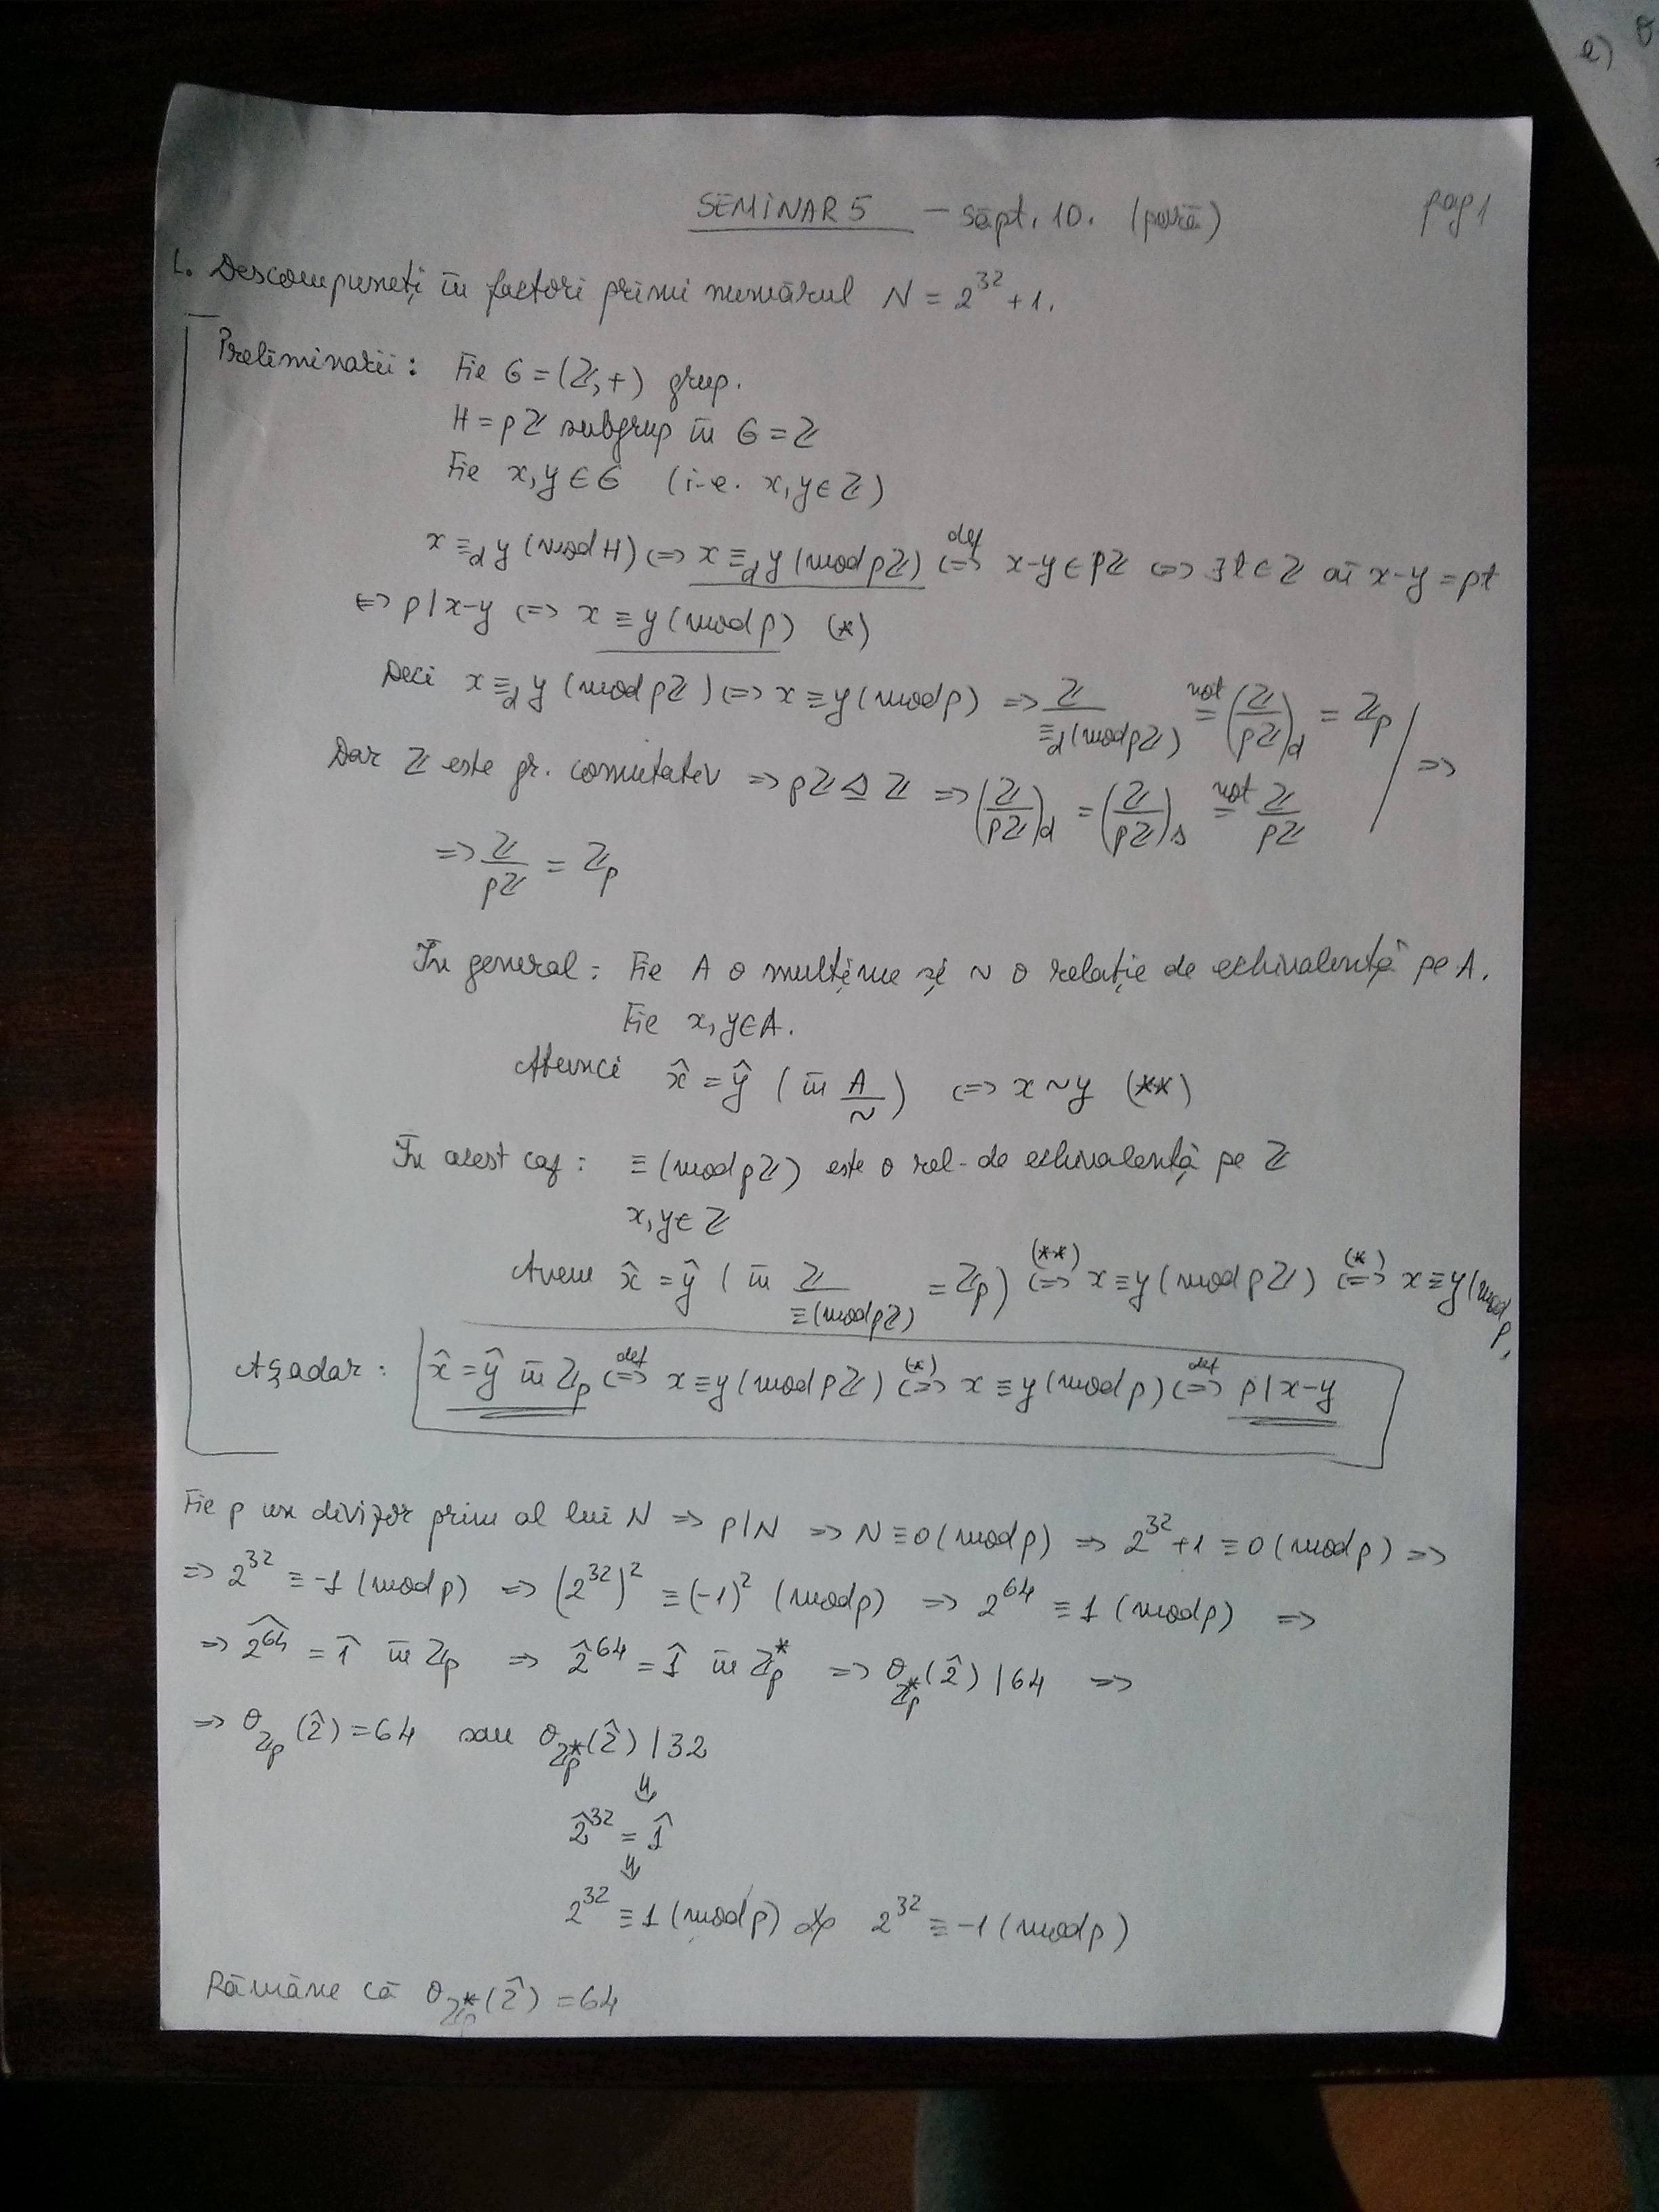 SEMINAR 5 - Săpt. 10. (pară) pag 1
1. Descompuneți în factori primi numărul N = 2^32 + 1.
Preliminarii: Fie G = (ℤ, +) grup.
H = pℤ subgrup în G = ℤ
Fie x, y ∈ G (i.e. x, y ∈ ℤ)
x ≡_d y (mod H) <=> x ≡_d y (mod pℤ) <=>^def x-y ∈ pℤ <=> ∃ t ∈ ℤ aî x-y = pt
<=> p | x-y <=> x ≡ y (mod p) (*)
Deci x ≡_d y (mod pℤ) <=> x ≡ y (mod p) => ℤ/≡_d (mod pℤ) =^not (ℤ/pℤ)_d = ℤ_p
Dar ℤ este gr. comutativ => pℤ ⊴ ℤ => (ℤ/pℤ)_d = (ℤ/pℤ)_s =^not ℤ/pℤ | =>
=> ℤ/pℤ = ℤ_p
În general: Fie A o mulțime și ~ o relație de echivalență pe A.
Fie x, y ∈ A.
Atunci x̂ = ŷ (în A/~) <=> x ~ y (**)
În acest caz: ≡ (mod pℤ) este o rel. de echivalență pe ℤ
x, y ∈ ℤ
Avem x̂ = ŷ (în ℤ/≡(mod pℤ) = ℤ_p) <=>^(**) x ≡ y (mod pℤ) <=>^(*) x ≡ y (mod p)
Așadar: x̂ = ŷ în ℤ_p <=>^def x ≡ y (mod pℤ) <=>^(*) x ≡ y (mod p) <=>^def p | x-y
Fie p un divizor prim al lui N => p | N => N ≡ 0 (mod p) => 2^32 + 1 ≡ 0 (mod p) =>
=> 2^32 ≡ -1 (mod p) => (2^32)^2 ≡ (-1)^2 (mod p) => 2^64 ≡ 1 (mod p) =>
=> \widehat{2^64} = 1̂ în ℤ_p => 2̂^64 = 1̂ în ℤ_p^* => o_{ℤ_p^*}(2̂) | 64 =>
=> o_{ℤ_p}(2̂) = 64 sau o_{ℤ_p^*}(2̂) | 32
⇓
2̂^32 = 1̂
⇓
2^32 ≡ 1 (mod p) 2^32 ≡ -1 (mod p)
Rămâne că o_{ℤ_p^*}(2̂) = 64
e)